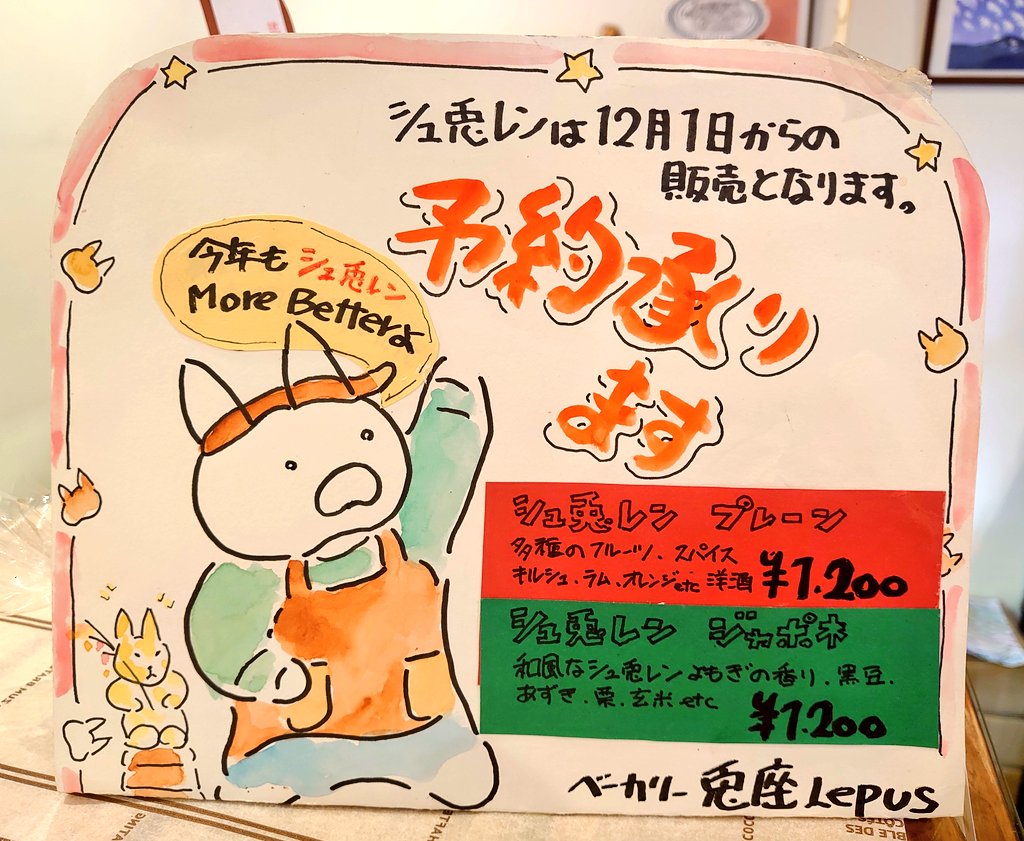 シュ兎レンは12月1日からの
販売となります。
予約承り
ます
今年もシュ兎レン
More Betterよ
シュ兎レン プレーン
多種のフルーツ、スパイス
キルシュ、ラム、オレンジetc 洋酒 ¥1.200
シュ兎レン ジャポネ
和風なシュ兎レン よもぎの香り、黒豆、
あずき、栗、玄米 etc
¥1.200
ベーカリー 兎座 Lepus